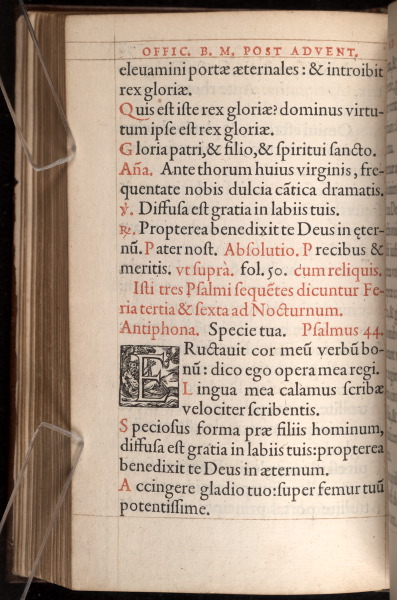 OFFIC. B. M. POST ADVENT.
eleuamini portæ æternales : & introibit
rex gloriæ.
Quis est iste rex gloriæ? dominus virtu-
tum ipse est rex gloriæ.
Gloria patri, & filio, & spiritui sancto.
Aña. Ante thorum huius virginis, fre-
quentate nobis dulcia cãtica dramatis.
℣. Diffusa est gratia in labiis tuis.
℟. Propterea benedixit te Deus in ęter-
nũ. Pater nost. Absolutio. Precibus &
meritis. vt suprà. fol. 50. cum reliquis.
Isti tres Psalmi sequẽtes dicuntur Fe-
ria tertia & sexta ad Nocturnum.
Antiphona. Specie tua. Psalmus 44.
ERuctauit cor meũ verbũ bo-
nũ : dico ego opera mea regi.
Lingua mea calamus scribæ
velociter scribentis.
Speciosus forma præ filiis hominum,
diffusa est gratia in labiis tuis: propterea
benedixit te Deus in æternum.
Accingere gladio tuo: super femur tuũ
potentissime.